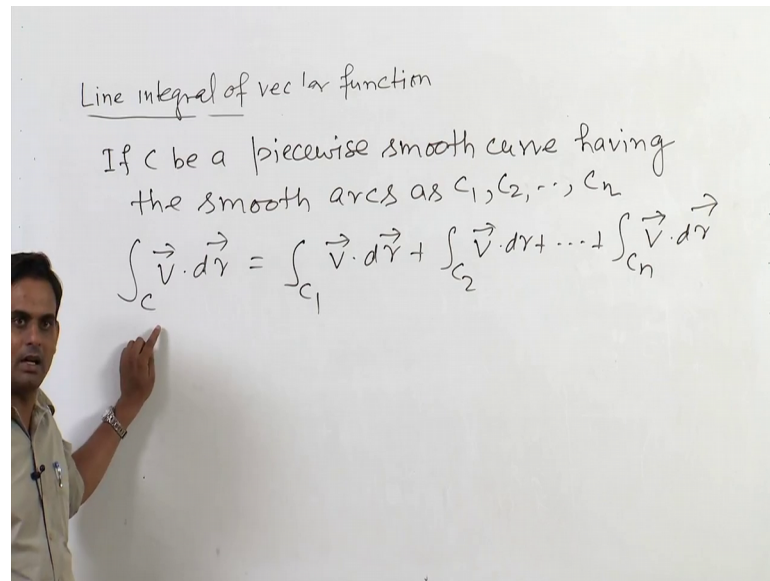 Line integral of vector function
If C be a piecewise smooth curve having
the smooth arcs as C₁, C₂, ..., Cₙ
∫_C V⃗ · dr⃗ = ∫_C₁ V⃗ · dr⃗ + ∫_C₂ V⃗ · dr + ... + ∫_Cₙ V⃗ · dr⃗